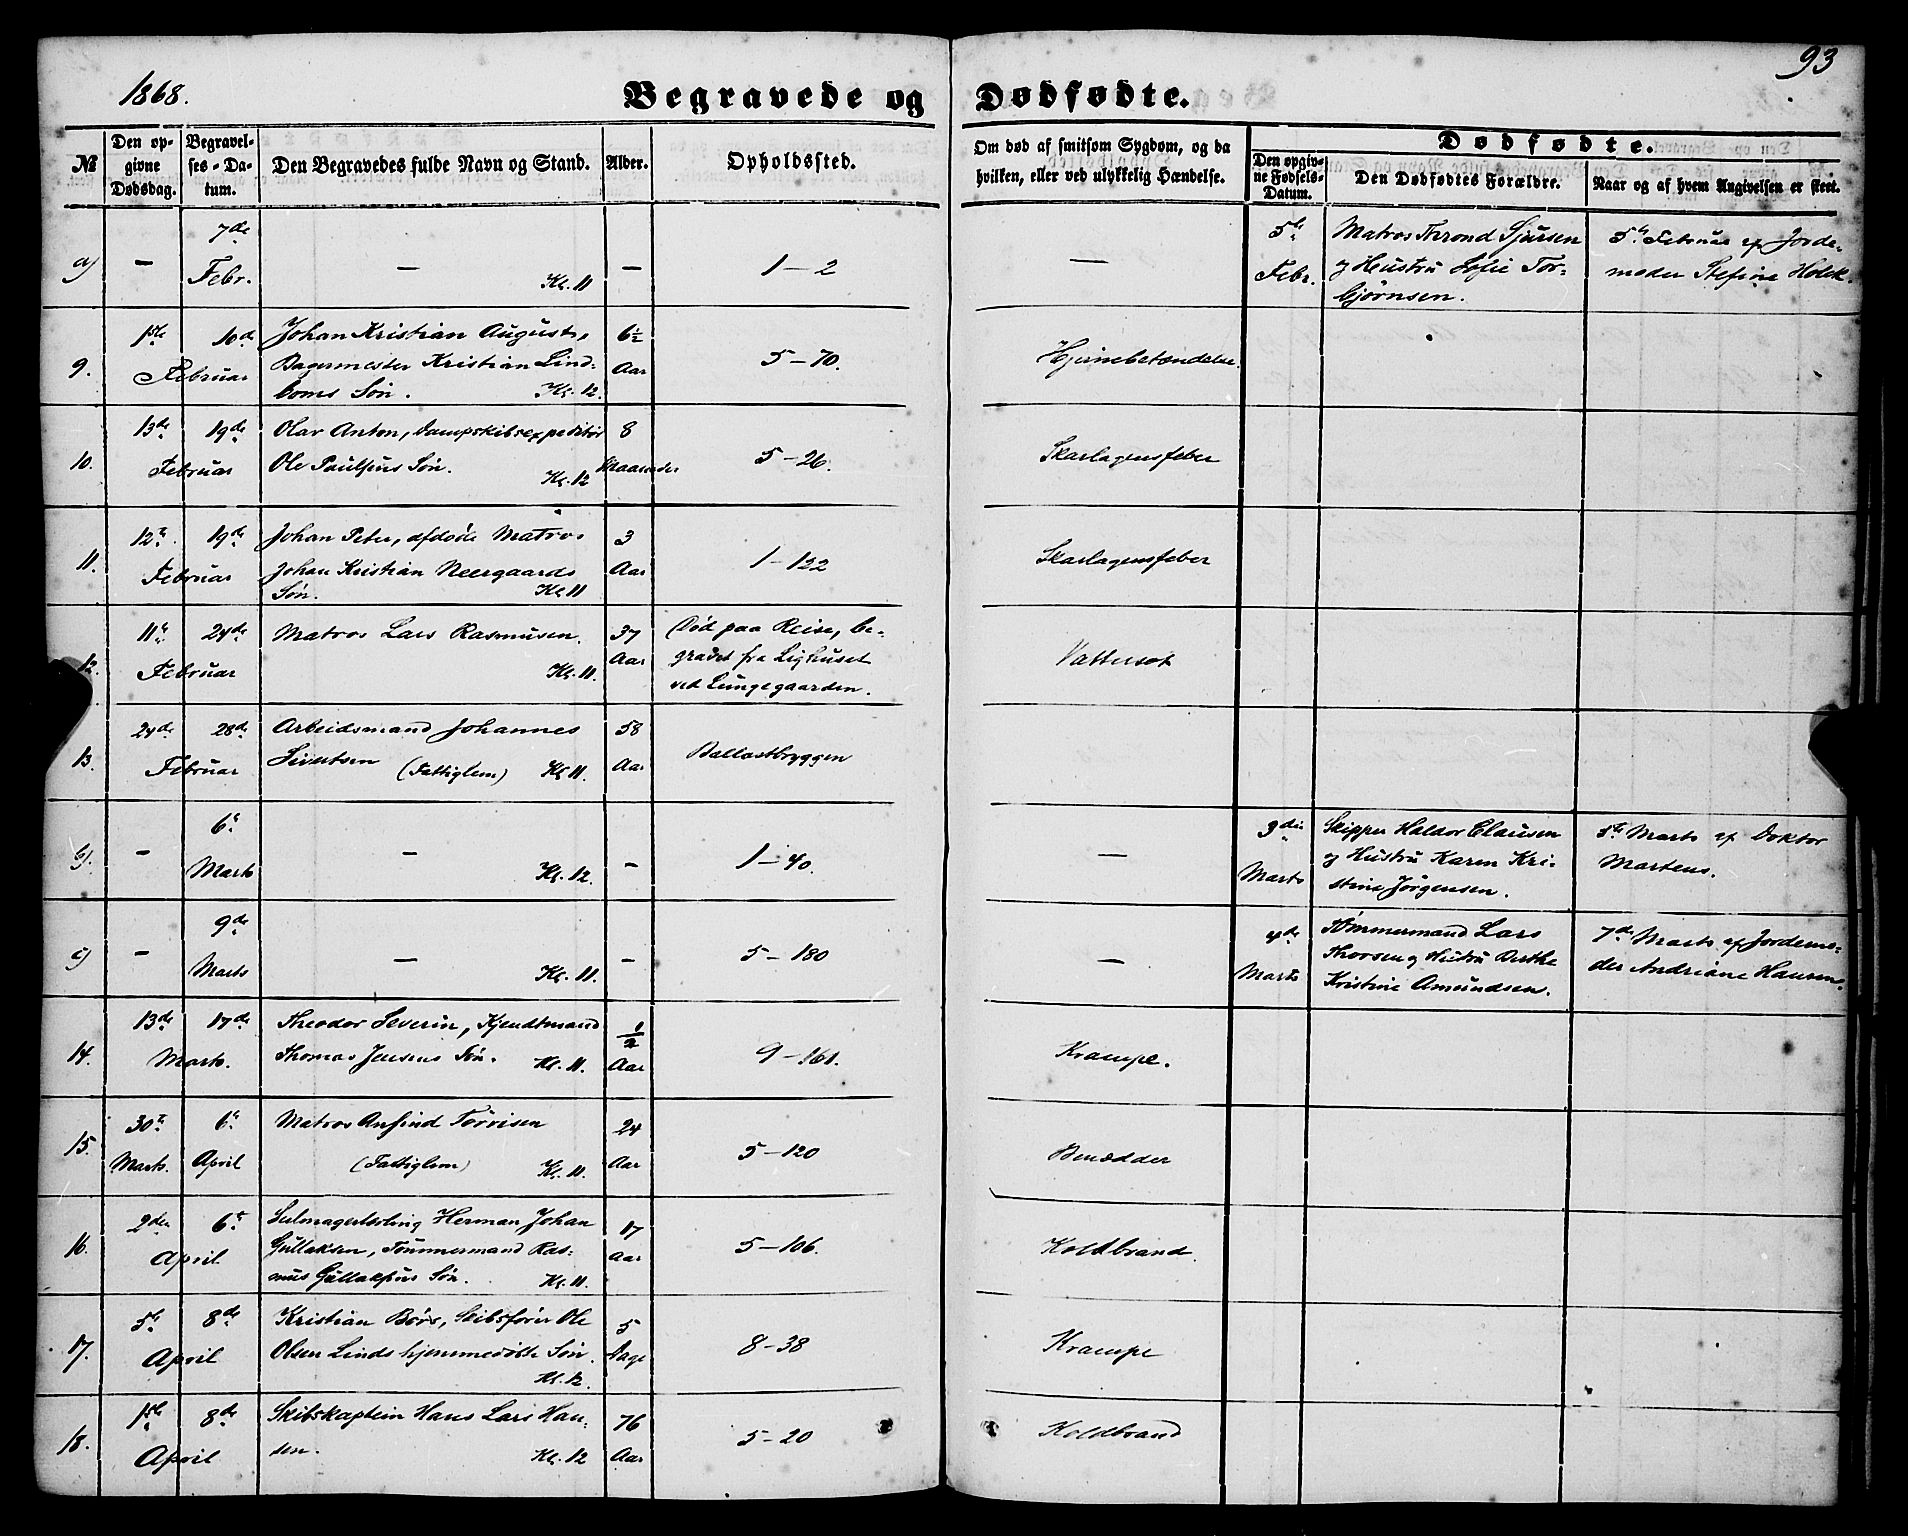 93
1868.
Begravede og Dødfødte.
№
Den opgivne Dødsdag.
Begravelses-Datum.
Den Begravedes fulde Navn og Stand.
Alder.
Opholdssted.
Om død af smitsom Sygdom, og da hvilken, eller ved ulykkelig Hændelse.
Dødfødte.
Den opgivne Fødsels-Datum.
Den Dødfødtes Forældre.
Naar og af hvem Angivelsen er skeet.
a) — 7de Febr. — Kl. 11 — 1 – 2 —
5te Febr.
Matros Thrond Sjursen
og Hustru Sofie Tor-
bjørnsen.
5te Februar af Jorde-
moder Stefine Holck.
9. 1ste 10de Februar
Johan Kristian August,
Bagermester Kristian Lind-
boms Søn. Kl. 12.
6½ Aar
5 – 70.
Hjernebetændelse.
10. 13de 19de Februar
Olav Anton, Dampskibsexpeditør
Ole Paulsens Søn. Kl. 12
8 Maaneder
5 – 26.
Skarlagensfeber
11. 12te 19de Februar
Johan Peter, afdøde Matros
Johan Kristian Neergaards
Søn. Kl. 11
3 Aar
1 – 122
Skarlagensfeber
12. 11te 24de Februar
Matros Lars Rasmusen.
Kl. 11.
37 Aar
Død paa Reise, be-
gravet fra Lighuset
ved Lungegaarden.
Vattersot
13. 24de 28de Februar
Arbeidsmand Johannes
Sivertsen (Fattiglem) Kl. 11.
58 Aar
Ballastbryggen
b). — 6te Marts — Kl. 12. — 1 – 40. —
3die Marts
Skipper Haldor Clausen
og Hustru Karen Kri-
stine Jørgensen.
5te Marts af Doktor
Martens.
c) — 9de Marts — Kl. 11. — 5 – 180 —
4de Marts
Tømmermand Lars
Thorsen og Hustru Berthe
Kristine Amundsen.
7de Marts af Jordemo-
der Andriane Hansen.
14. 13de 17de Marts.
Theodor Severin, Kjendtmand
Thomas Jensens Søn. Kl. 11.
½ Aar
9 – 161.
Krampe.
15. 30te Marts. 6te April
Matros Anfind Torrisen
(Fattiglem) Kl. 11.
24 Aar
5 – 120
Benedder
16. 2den 6te April
Seilmagerlærling Herman Johan
Gullaksen, Tømmermand Ras-
mus Gullaksens Søn. Kl. 11.
17 Aar
5 – 106.
Koldbrand.
17. 5te 8de April
Kristian Børs, Skibsfører Ole
Olsen Linds hjemmedøbte Søn.
Kl. 12.
5 Dage
8 – 38
Krampe
18. 1ste 8de April
Skibskaptein Hans Lars Han-
sen. Kl. 12
76 Aar
5 – 20
Koldbrand